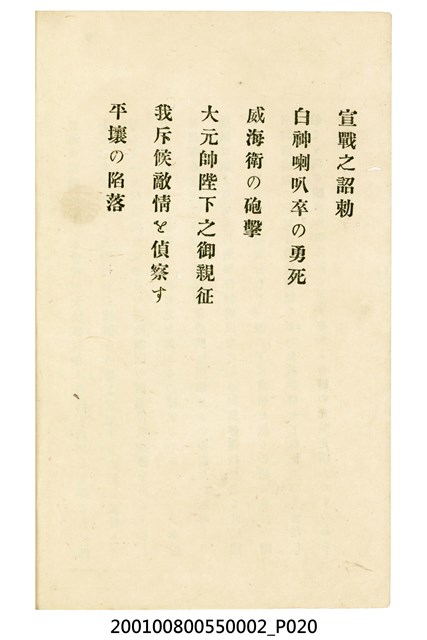 宣戰之詔勅
白神喇叭卒の勇死
威海衛の砲擊
大元帥陛下之御親征
我斥候敵情を偵察す
平壤の陷落
200100800550002_P020